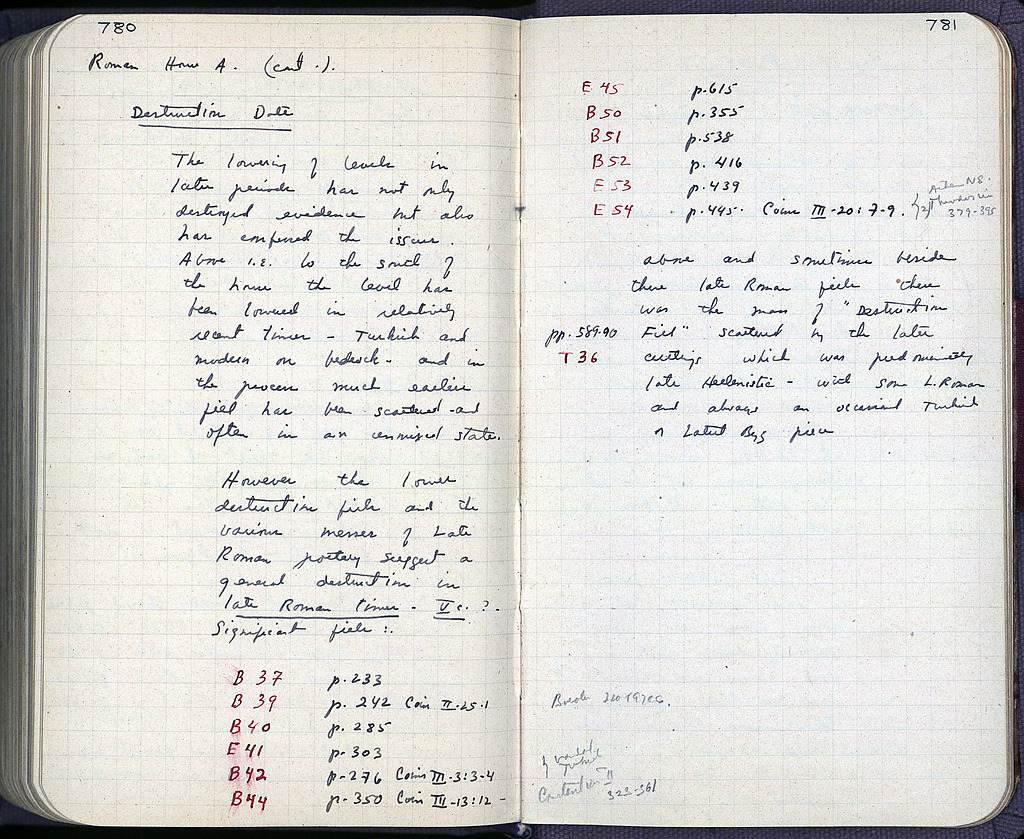 780
Roman House A. (cont.).
Destruction Date
The lowering of levels in
later periods has not only
destroyed evidence but also
has confused the issue.
Above i.e. to the south of
the house the level has
been lowered in relatively
recent times - Turkish and
modern on bedrock - and in
the process much earlier
fill has been scattered and
often in an unmixed state.
However the lower
destruction fills and the
various messes of Late
Roman pottery suggest a
general destruction in
late Roman times - V c. ?.
Significant fills :.
B 37 p. 233
B 39 p. 242 Coin II-25-1
B 40 p. 285
E 41 p. 303
B 42 p. 276 Coins III-3:3-4
B 44 p. 350 Coin III-13:12 -
781
E 45 p. 615
B 50 p. 355
B 51 p. 538
B 52 p. 416
E 53 p. 439
E 54 p. 445. Coins III-20:7-9.
379-395
above and sometimes beside
these late Roman fills there
was the mass of "Destruction
pp. 589-90 Fill" scattered by the later
T 36 cuttings which was predominately
late Hellenistic - with some L. Roman
and always an occasional Turkish
or Latest Byz piece
Constantius II
323-361